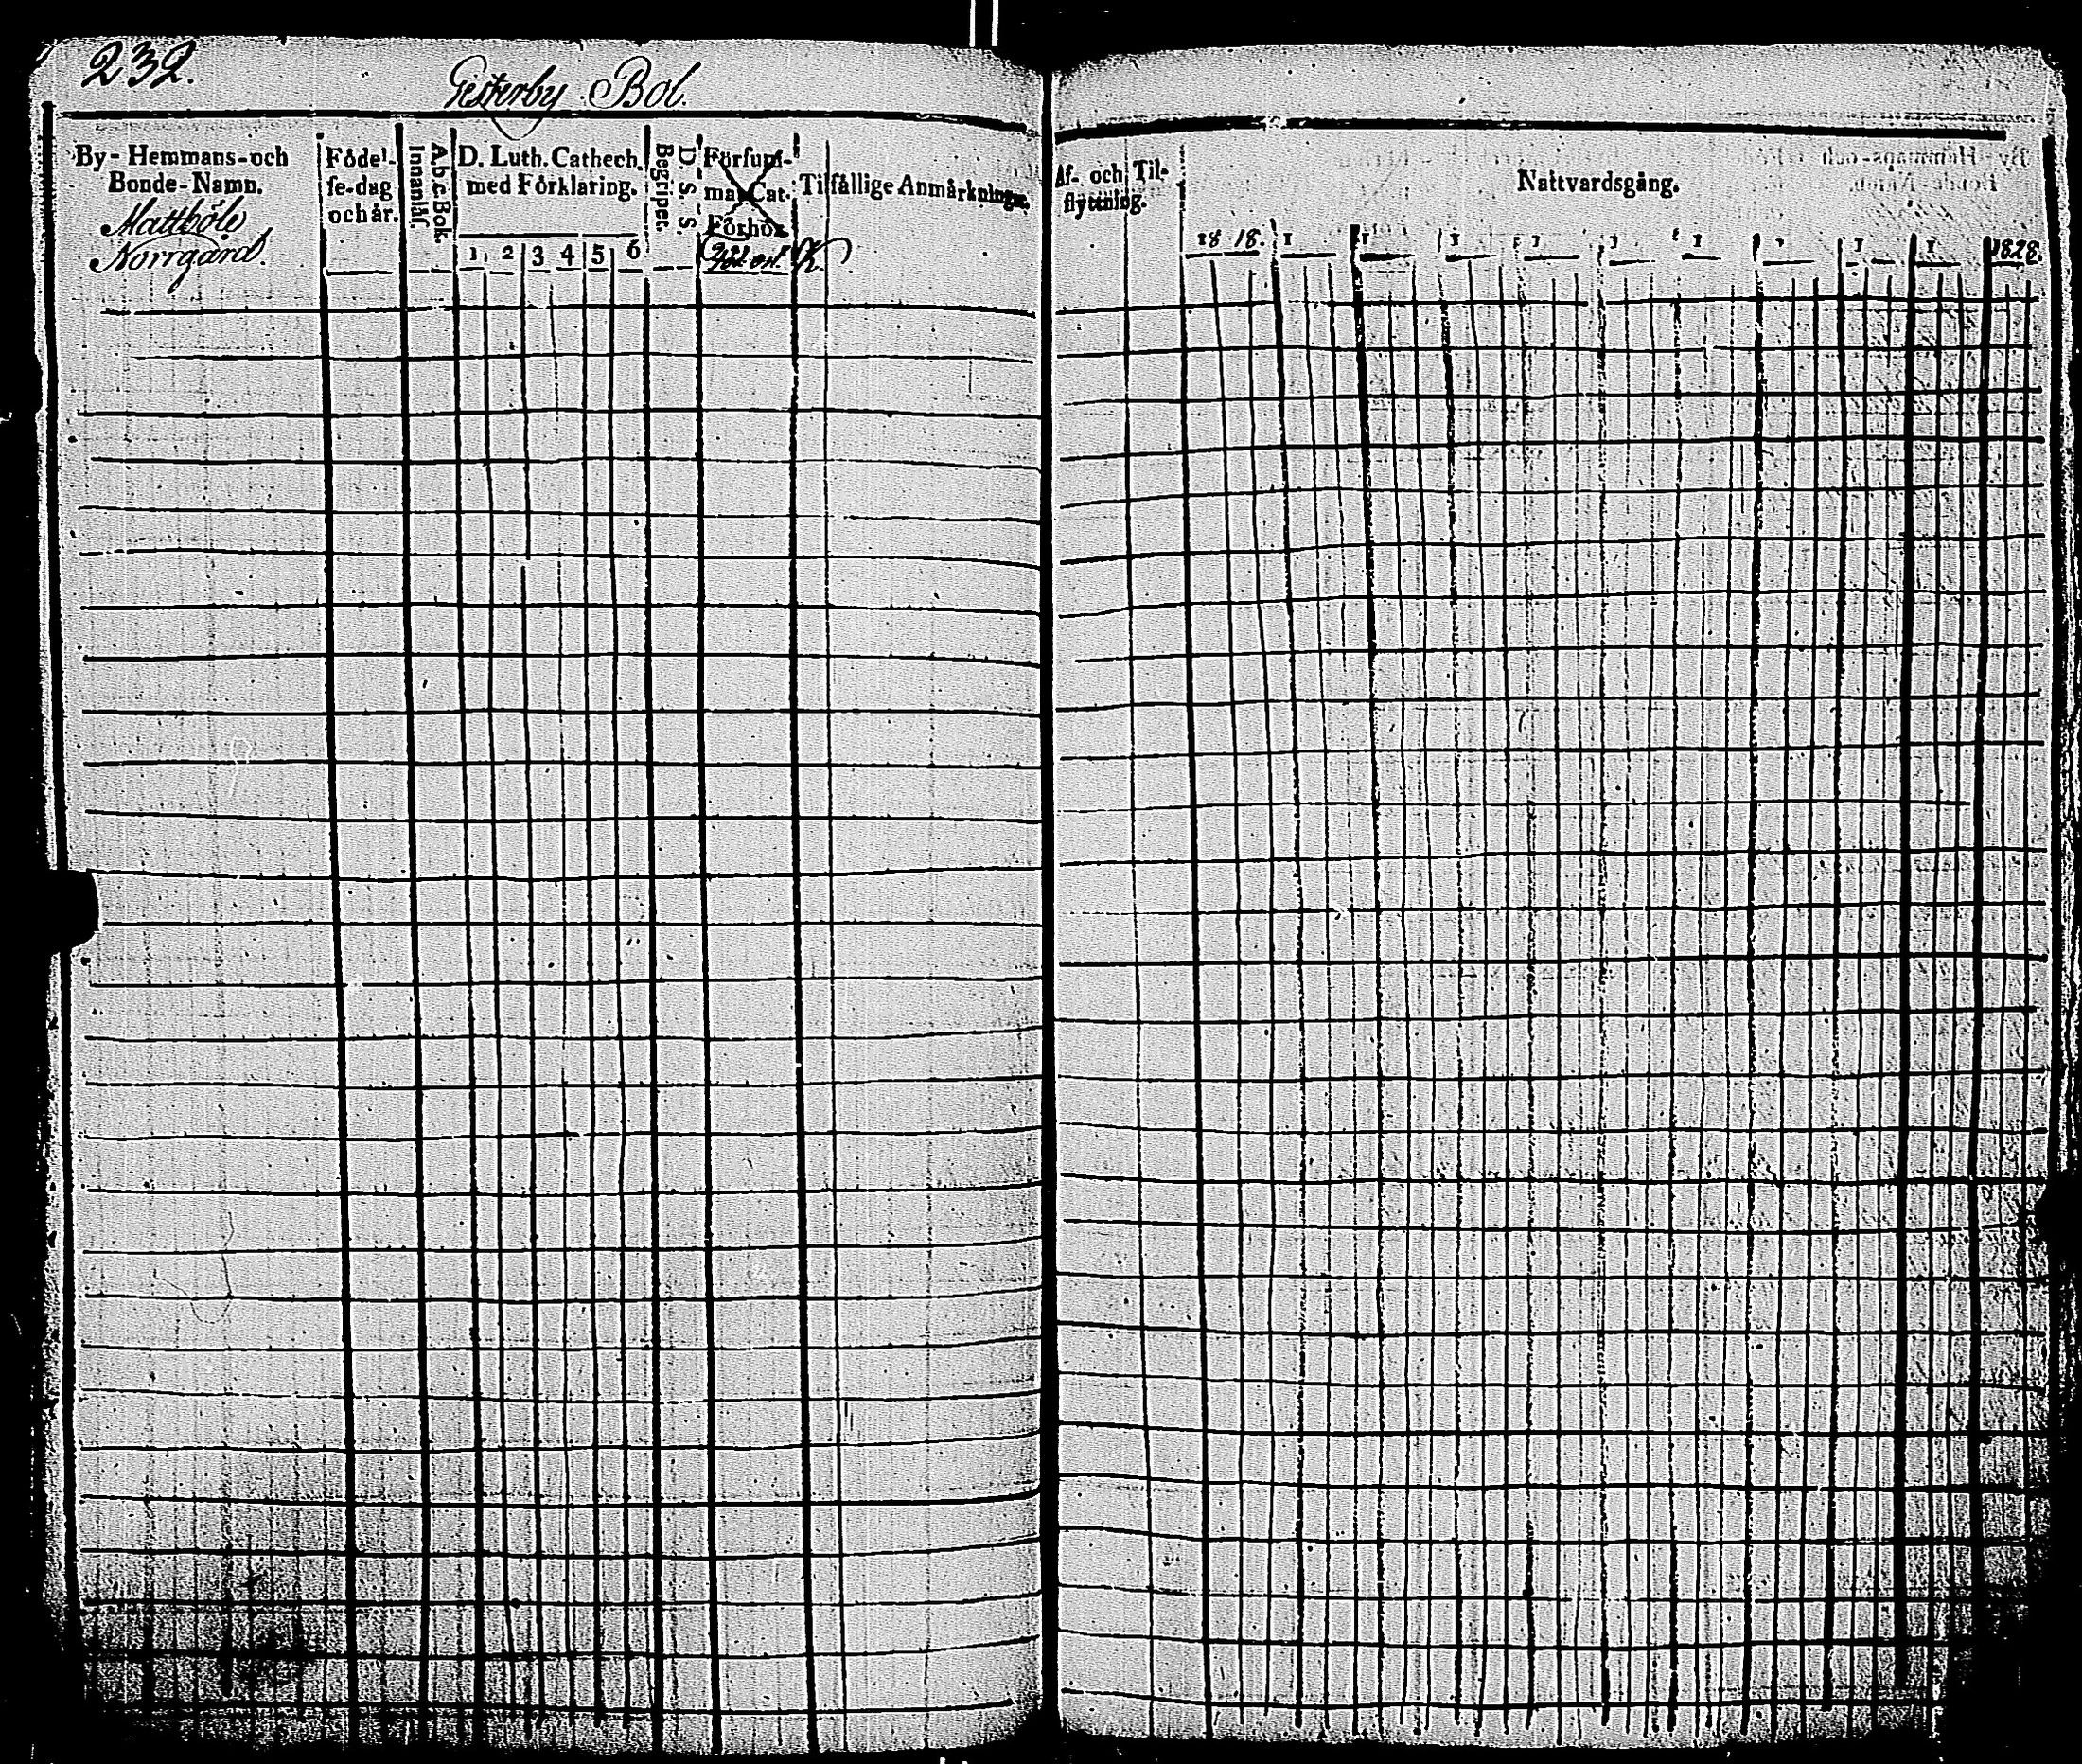 232.
Gesterby Bol.
By-Hemmans-och
Bonde-Namn.
Mattböle
Norrgård.
Födel-
se-dag
och år.
A.b.c.Bok.
Innanläs.
D. Luth. Cathech.
med Förklaring.
1 2 3 4 5 6
D. S. S.
Begripet.
Försum-
ma Cat.
Förhör
Tilfällige Anmärkningar.
Af- och Til-
flyttning.
Nattvardsgång.
18 18. 1 1 1 1 1 1 1 1 1 1828.